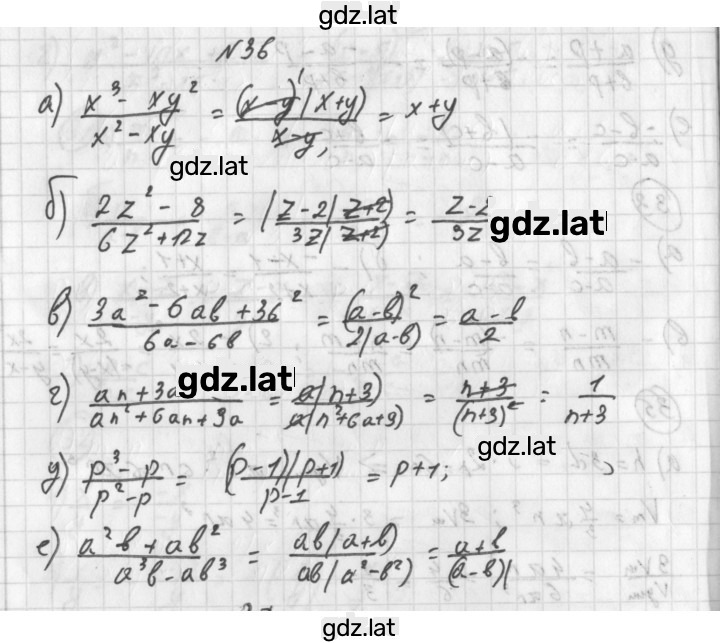 gdz.lat
N36
а) (x³ - xy²)/(x² - xy) = ((x-y)¹(x+y))/(x-y,) = x+y
gdz.lat
б) (2z² - 8)/(6z²+12z) = ((z-2)(z+2))/(3z(z+2)) = (z-2)/(3z) gdz.lat
в) (3a² - 6ab + 3b²)/(6a - 6b) = (a-b)²/(2(a-b)) = (a-b)/2
г) (an+3a)/(an²+6an+9a) = (a(n+3))/(a(n²+6a+9)) = (n+3)/(n+3)² = 1/(n+3)
gdz.lat
gdz.lat
д) (p³-p)/(p²-p) = ((p-1)(p+1))/(p-1) = p+1;
е) (a²b+ab²)/(a³b-ab³) = (ab(a+b))/(ab(a²-b²)) = (a+b)/((a-b)(
gdz.lat